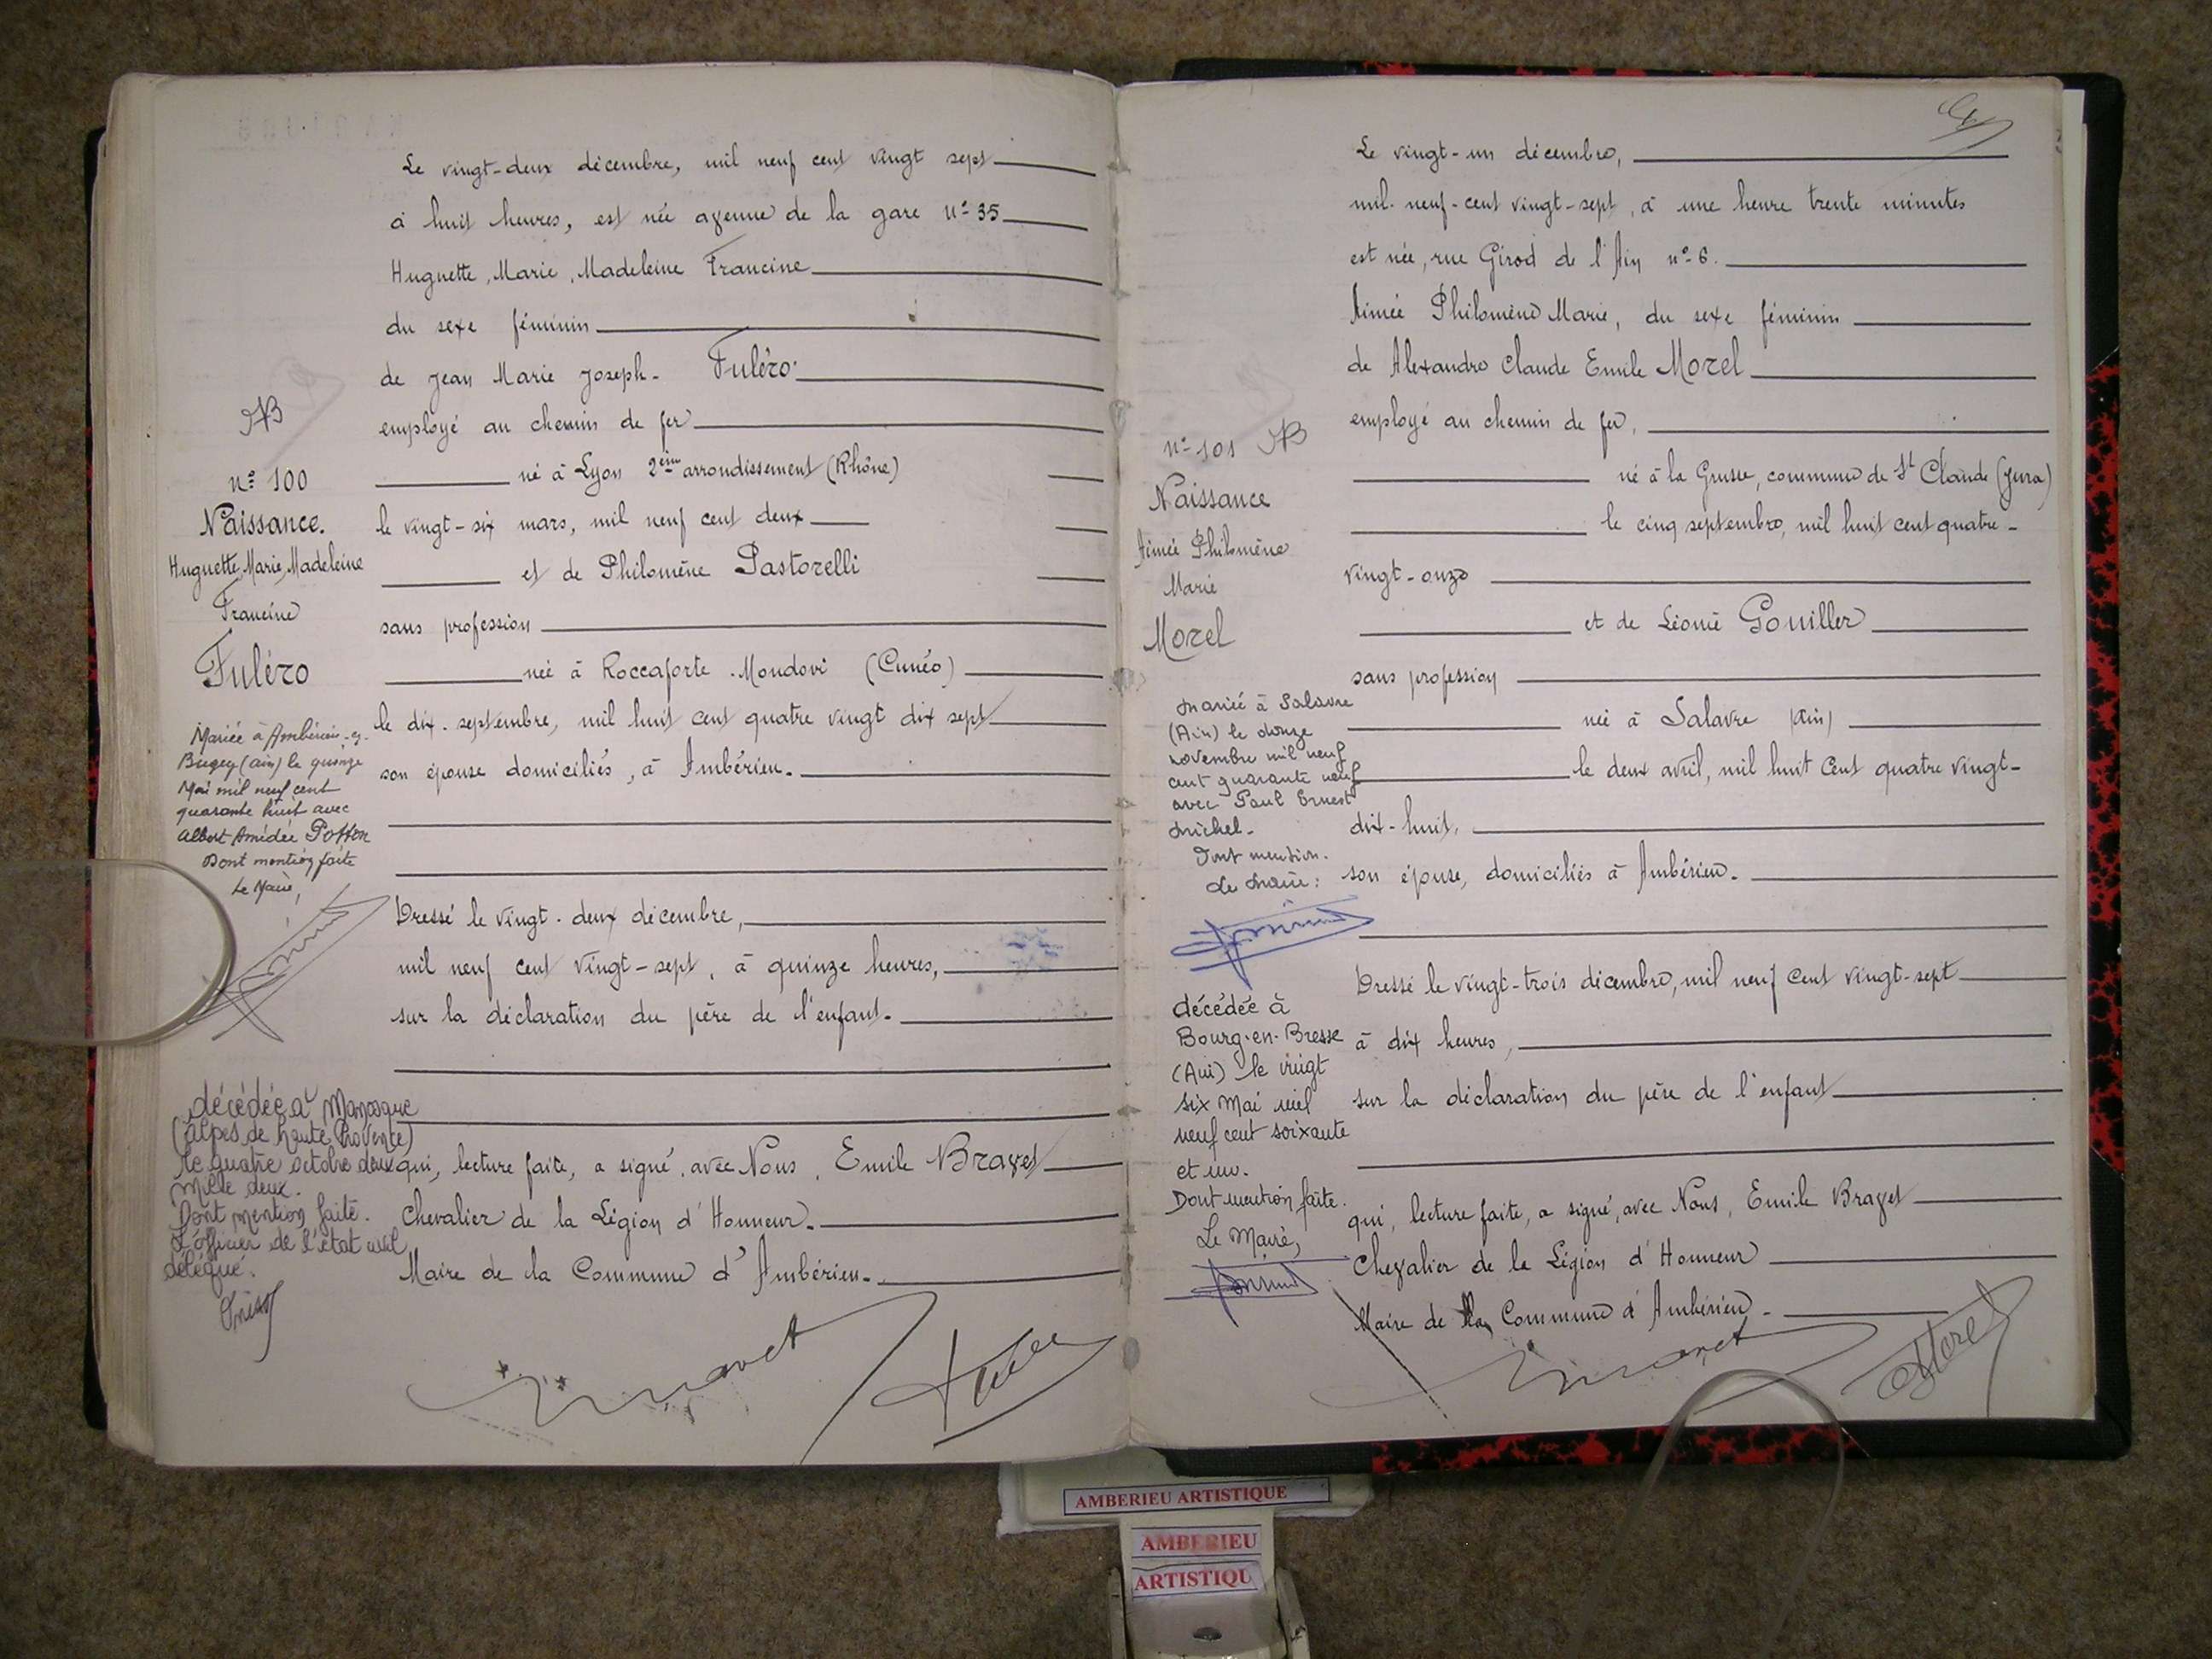 Le vingt-deux décembre, mil neuf cent vingt sept
à huit heures, est née avenue de la gare n° 35
Huguette, Marie, Madeleine Francine
du sexe féminin
de Jean Marie Joseph- Fuléro
employé au chemin de fer
né à Lyon 2ème arrondissement (Rhône)
le vingt-six mars, mil neuf cent deux
et de Philomène Pastorelli
sans profession
née à Roccaforte-Mondovi (Cunéo)
le dix-septembre, mil huit cent quatre vingt dix sept
son épouse domiciliés, à Ambérieu.
Dressé le vingt-deux décembre,
mil neuf cent vingt-sept, à quinze heures,
sur la déclaration du père de l'enfant.
qui, lecture faite, a signé, avec Nous, Emile Bravet
Chevalier de la Légion d'Honneur.
Maire de la Commune d'Ambérieu.
n° 100
Naissance.
Huguette, Marie, Madeleine
Francine
Fuléro
Mariée à Ambérieu-en-
Bugey (Ain) le quinze
Mai mil neuf cent
quarante huit avec
Albert Amédée Potton
Dont mention faite
Le Maire,
décédée à Manosque
(Alpes de Haute Provence)
le quatre octobre deux
mille deux.
Dont mention faite.
L'officier de l'état civil
délégué.
Le vingt-un décembre,
mil-neuf-cent vingt-sept, à une heure trente minutes
est née, rue Girod de l'Ain n° 6.
Aimée Philomène Marie, du sexe féminin
de Alexandre Claude Emile Morel
employé au chemin de fer,
né à la Grusse, commune de St Claude (Jura)
le cinq septembre, mil huit cent quatre-
vingt-onze
et de Léonie Gouiller
sans profession
née à Salavre (Ain)
le deux avril, mil huit cent quatre vingt-
dix-huit,
son épouse, domiciliés à Ambérieu.
Dressé le vingt-trois décembre, mil neuf cent vingt-sept
à dix heures,
sur la déclaration du père de l'enfant
qui, lecture faite, a signé, avec Nous, Emile Bravet
Chevalier de la Légion d'Honneur
Maire de la Commune d'Ambérieu.
Morel
n° 101
Naissance
Aimée Philomène
Marie
Morel
Mariée à Salavre
(Ain) le douze
novembre mil neuf
cent quarante neuf
avec Paul Ernest
Michel.
Dont mention.
Le Maire:
décédée à
Bourg-en-Bresse
(Ain) le vingt
six Mai mil
neuf cent soixante
et un.
Dont mention faite.
Le Maire,
AMBERIEU ARTISTIQUE
AMBERIEU
ARTISTIQU